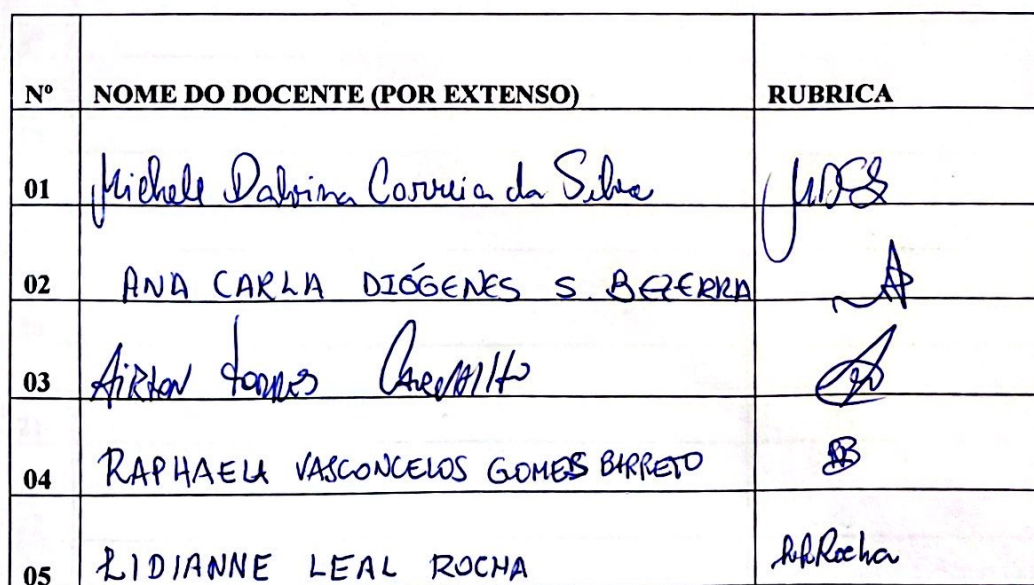 Nº NOME DO DOCENTE (POR EXTENSO) RUBRICA
01 Michele Dalvina Correia da Silva MDCS
02 ANA CARLA DIÓGENES S. BEZERRA
03 AIRTON TORRES CARVALHO
04 RAPHAELA VASCONCELOS GOMES BARRETO
05 LIDIANNE LEAL ROCHA LLRocha